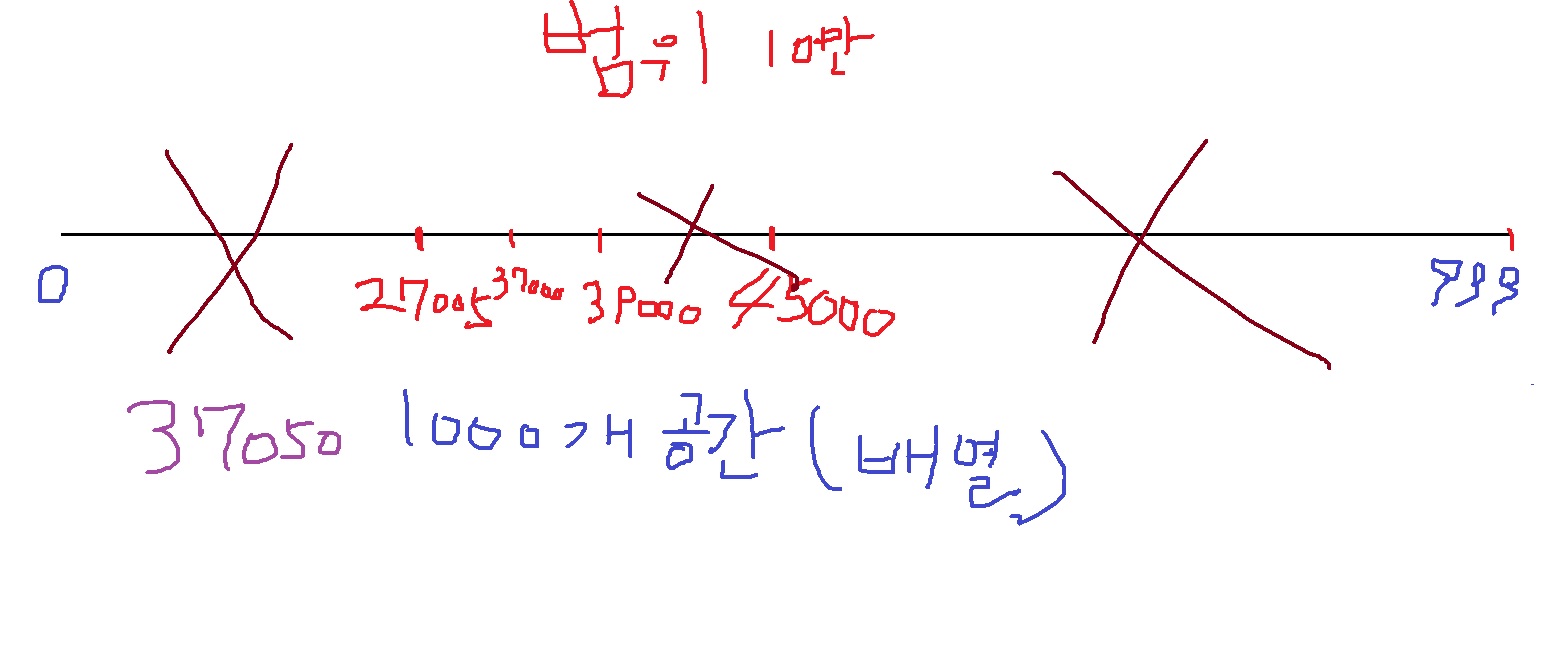 범위 10만
0 27005 37000 39000 45000 999
37050 1000개 공간 (배열)